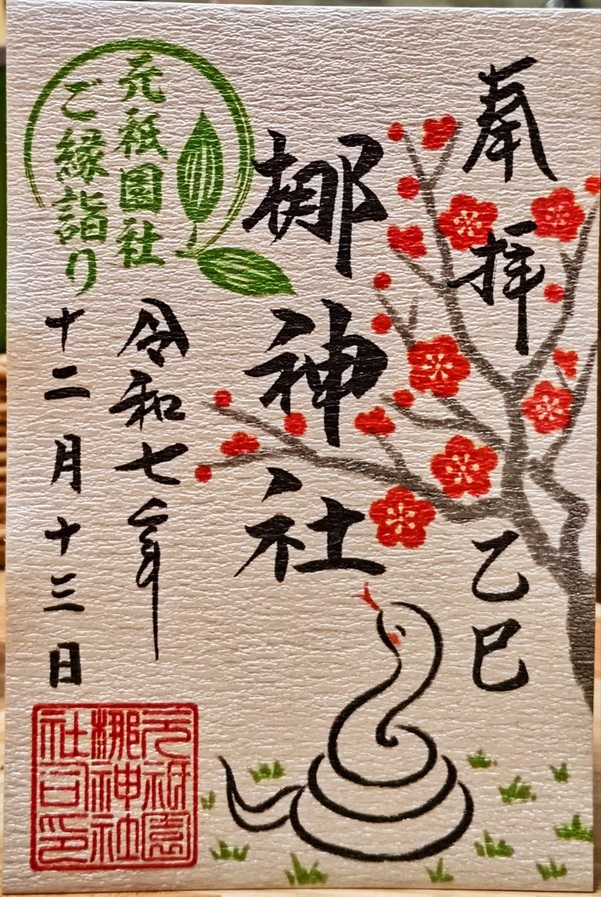 奉拝
乙巳
梛神社
元祇園社
ご縁詣り
令和七年
十二月十三日
元祇園
梛神社
社司印